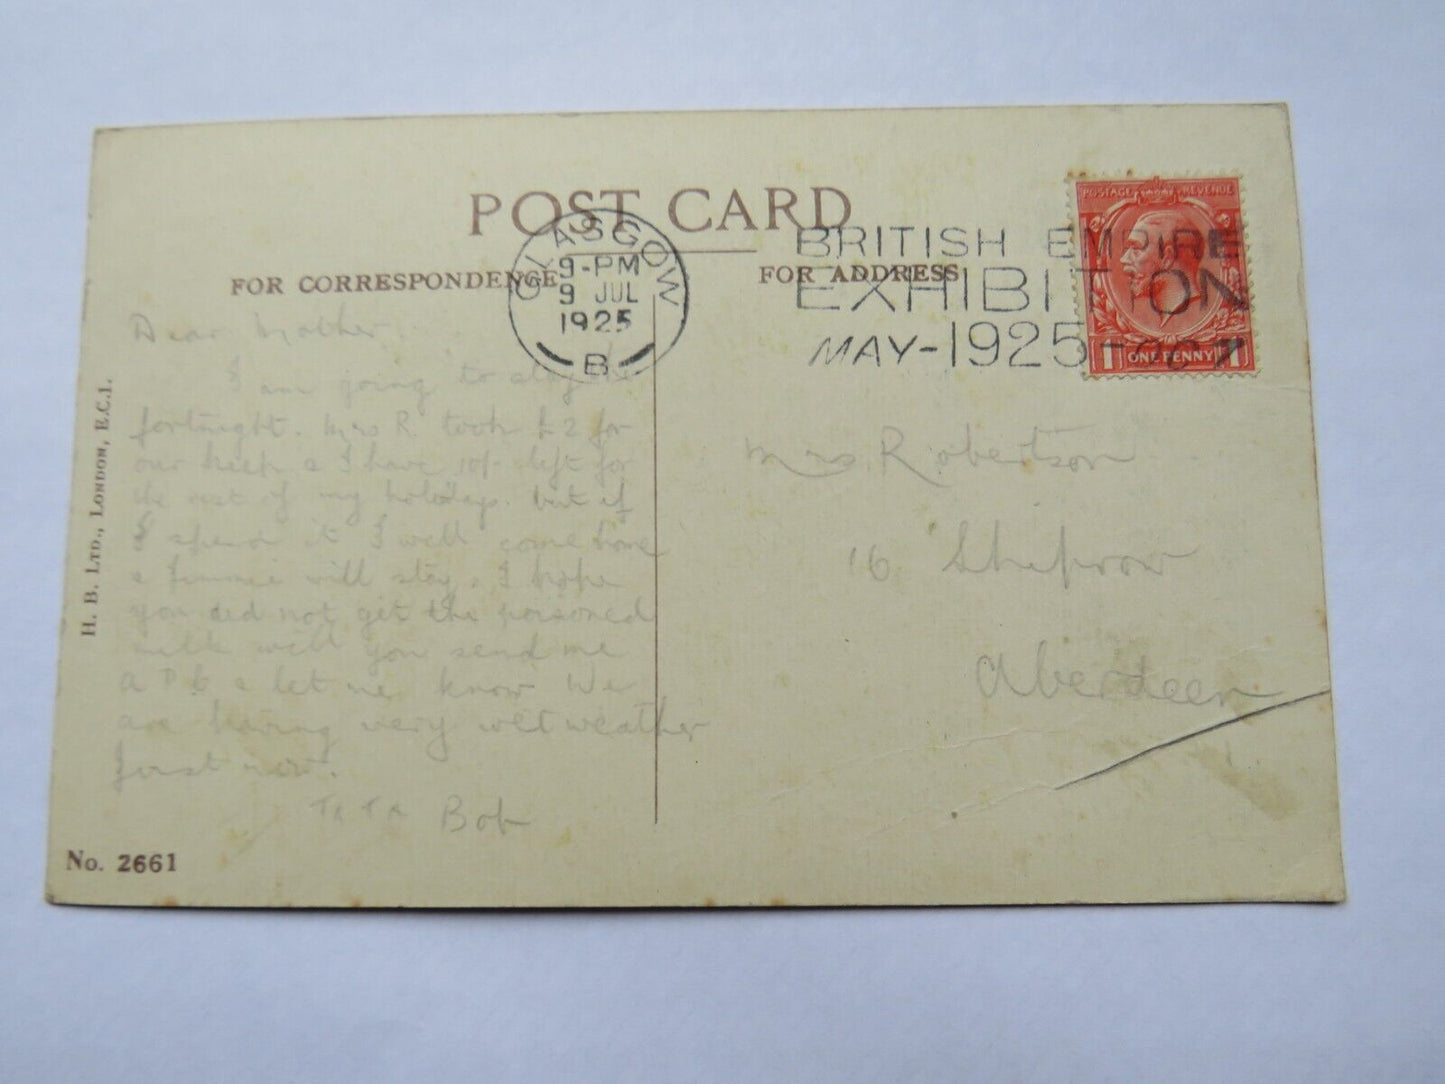 POST CARD
FOR CORRESPONDENCE
FOR ADDRESS
GLASGOW
9-PM
9 JUL
1925
B
BRITISH EMPIRE
EXHIBITION
MAY-1925-OCT
POSTAGE REVENUE
1 ONE PENNY 1
Dear Mother
I am going to stay the
fortnight. Mrs R. took £2 for
our keep & I have 10/- left for
the rest of my holidays. but if
I spend it I will come home
& Jimmie will stay. I hope
you did not get the poisoned
milk will you send me
a P.C & let me know We
are having very wet weather
just now.
TaTa Bob
Mrs Robertson
16 Shiprow
Aberdeen
H. B. LTD., LONDON, E.C.1.
No. 2661